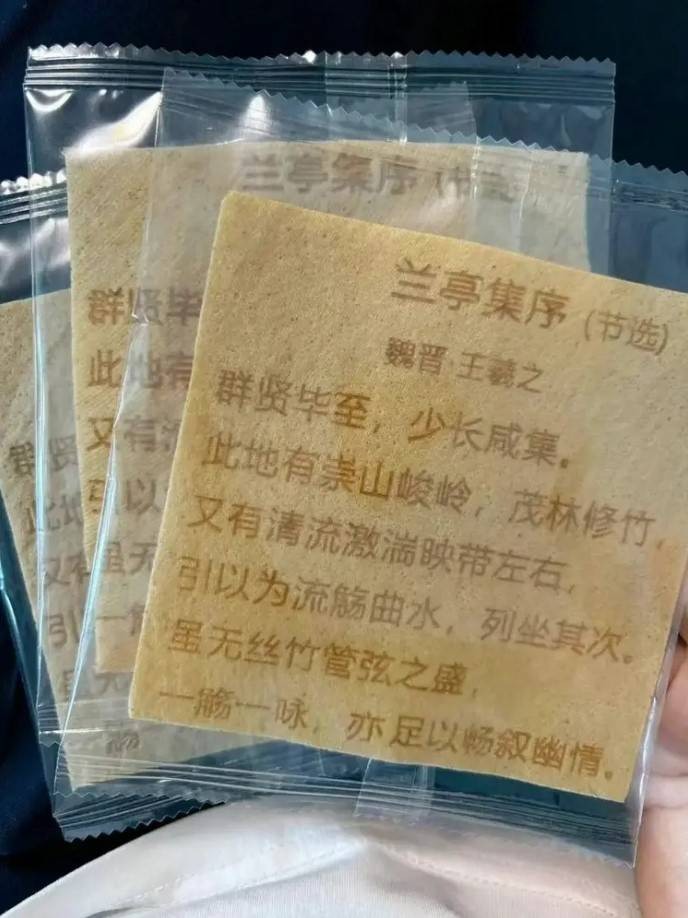 兰亭集序（节选）
魏晋·王羲之
群贤毕至，少长咸集。
此地有崇山峻岭，茂林修竹，
又有清流激湍映带左右，
引以为流觞曲水，列坐其次。
虽无丝竹管弦之盛，
一觞一咏，亦足以畅叙幽情。
兰亭集序（节选
群贤毕
此地有
又有清
引以
虽无
一觞
群贤
此地
又有
引
虽无